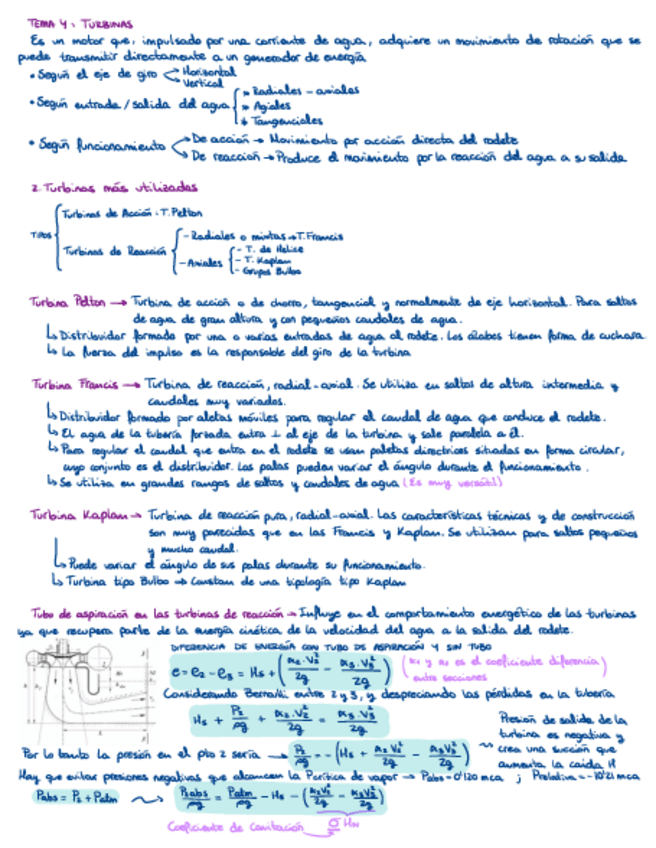 TEMA 4: TURBINAS
Es un motor que, impulsado por una corriente de agua, adquiere un movimiento de rotación que se
puede transmitir directamente a un generador de energía
• Según el eje de giro Horizontal
Vertical
• Según entrada/salida del agua * Radiales-axiales
* Axiales
* Tangenciales
• Según funcionamiento De acción → Movimiento por acción directa del rodete
De reacción → Produce el movimiento por la reacción del agua a su salida
2. Turbinas más utilizadas
TIPOS Turbinas de Acción: T. Pelton
Turbinas de Reacción - Radiales o mixtas → T. Francis
- Axiales - T. de Helice
- T. Kaplan
- Grupos Bulbo
Turbina Pelton → Turbina de acción o de chorro, tangencial y normalmente de eje horizontal. Para saltos
de agua de gran altura y con pequeños caudales de agua.
↳ Distribuidor formado por una o varias entradas de agua al rodete. Los álabes tienen forma de cuchara.
↳ La fuerza del impulso es la responsable del giro de la turbina
Turbina Francis → Turbina de reacción, radial-axial. Se utiliza en saltos de altura intermedia y
caudales muy variados.
↳ Distribuidor formado por aletas móviles para regular el caudal de agua que conduce el rodete.
↳ El agua de la tubería forzada entra ⊥ al eje de la turbina y sale paralela a él.
↳ Para regular el caudal que entra en el rodete se usan paletas directrices situadas en forma circular,
cuyo conjunto es el distribuidor. Las palas pueden variar el ángulo durante el funcionamiento.
↳ Se utiliza en grandes rangos de saltos y caudales de agua (Es muy versátil)
Turbina Kaplan → Turbina de reacción pura, radial-axial. Las características técnicas y de construcción
son muy parecidas que en las Francis y Kaplan. Se utilizan para saltos pequeños
y mucho caudal.
↳ Puede variar el ángulo de sus palas durante su funcionamiento.
↳ Turbina tipo Bulbo → Constan de una tipología tipo Kaplan
Tubo de aspiración en las turbinas de reacción → Influye en el comportamiento energético de las turbinas
ya que recupera parte de la energía cinética de la velocidad del agua a la salida del rodete.
DIFERENCIA DE ENERGÍA CON TUBO DE ASPIRACIÓN Y SIN TUBO
e = e2 - e3 = Hs + (α2·V2²/2g - α3·V3²/2g) (α1 y α2 es el coeficiente diferencia)
entre secciones
Considerando Bernoulli entre 2 y 3, y despreciando las pérdidas en la tubería
Hs + P2/ρg + α2·V2²/2g = α3·V3²/2g
Presión de salida de la
turbina es negativa y
crea una succión que
aumenta la caída H
Por lo tanto la presión en el pto 2 sería → P2/ρg = -(Hs + α2V2²/2g - α3V3²/2g)
Hay que evitar presiones negativas que alcancen la Pcrítica de vapor → Pabs = 0'120 mca ; Prelativa = -10'21 mca
Pabs = P2 + Patm P2abs/ρg = Patm/ρg - Hs - (α2V2²/2g - α3V3²/2g)
Coeficiente de cavitación σ HN